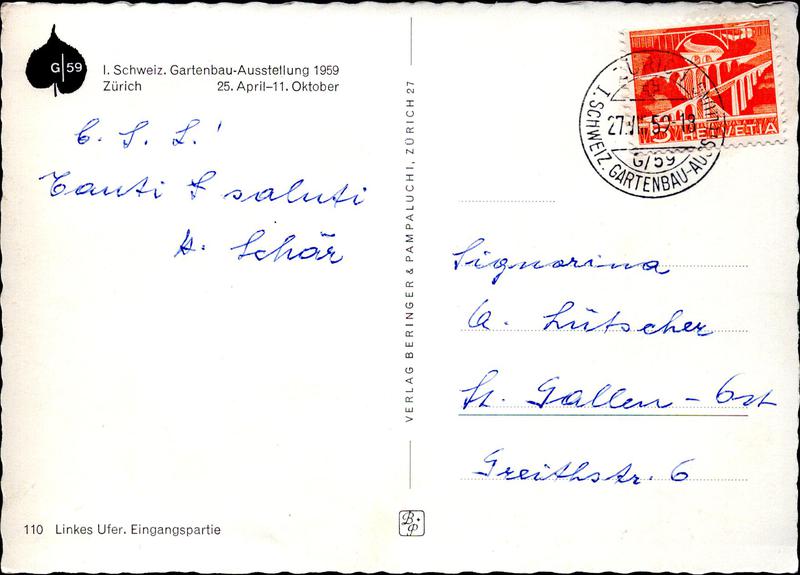 G 59
I. Schweiz. Gartenbau-Ausstellung 1959
Zürich 25. April–11. Oktober
C. S. L.'
Tanti saluti
H. Schär
110 Linkes Ufer. Eingangspartie
VERLAG BERINGER & PAMPALUCHI, ZÜRICH 27
B+P
ZÜRICH
I. SCHWEIZ. GARTENBAU-AUSSTELLUNG
59-18
G/59
5 HELVETIA
Signorina
A. Lütscher
St. Gallen - Ost
Greithstr. 6